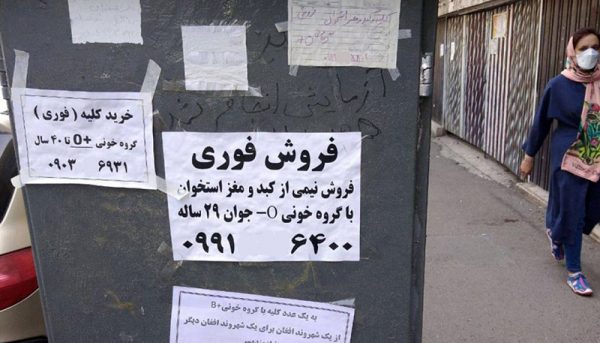 خرید کلیه ( فوری )
گروه خونی +O تا ۴۰ سال
۰۹۰۳ ۶۹۳۱
فروش فوری
فروش نیمی از کبد و مغز استخوان
با گروه خونی O- جوان ۲۹ ساله
۰۹۹۱ ۶۴۰۰
به یک عدد کلیه با گروه خونی B+
از یک شهروند افغان برای یک شهروند افغان دیگر